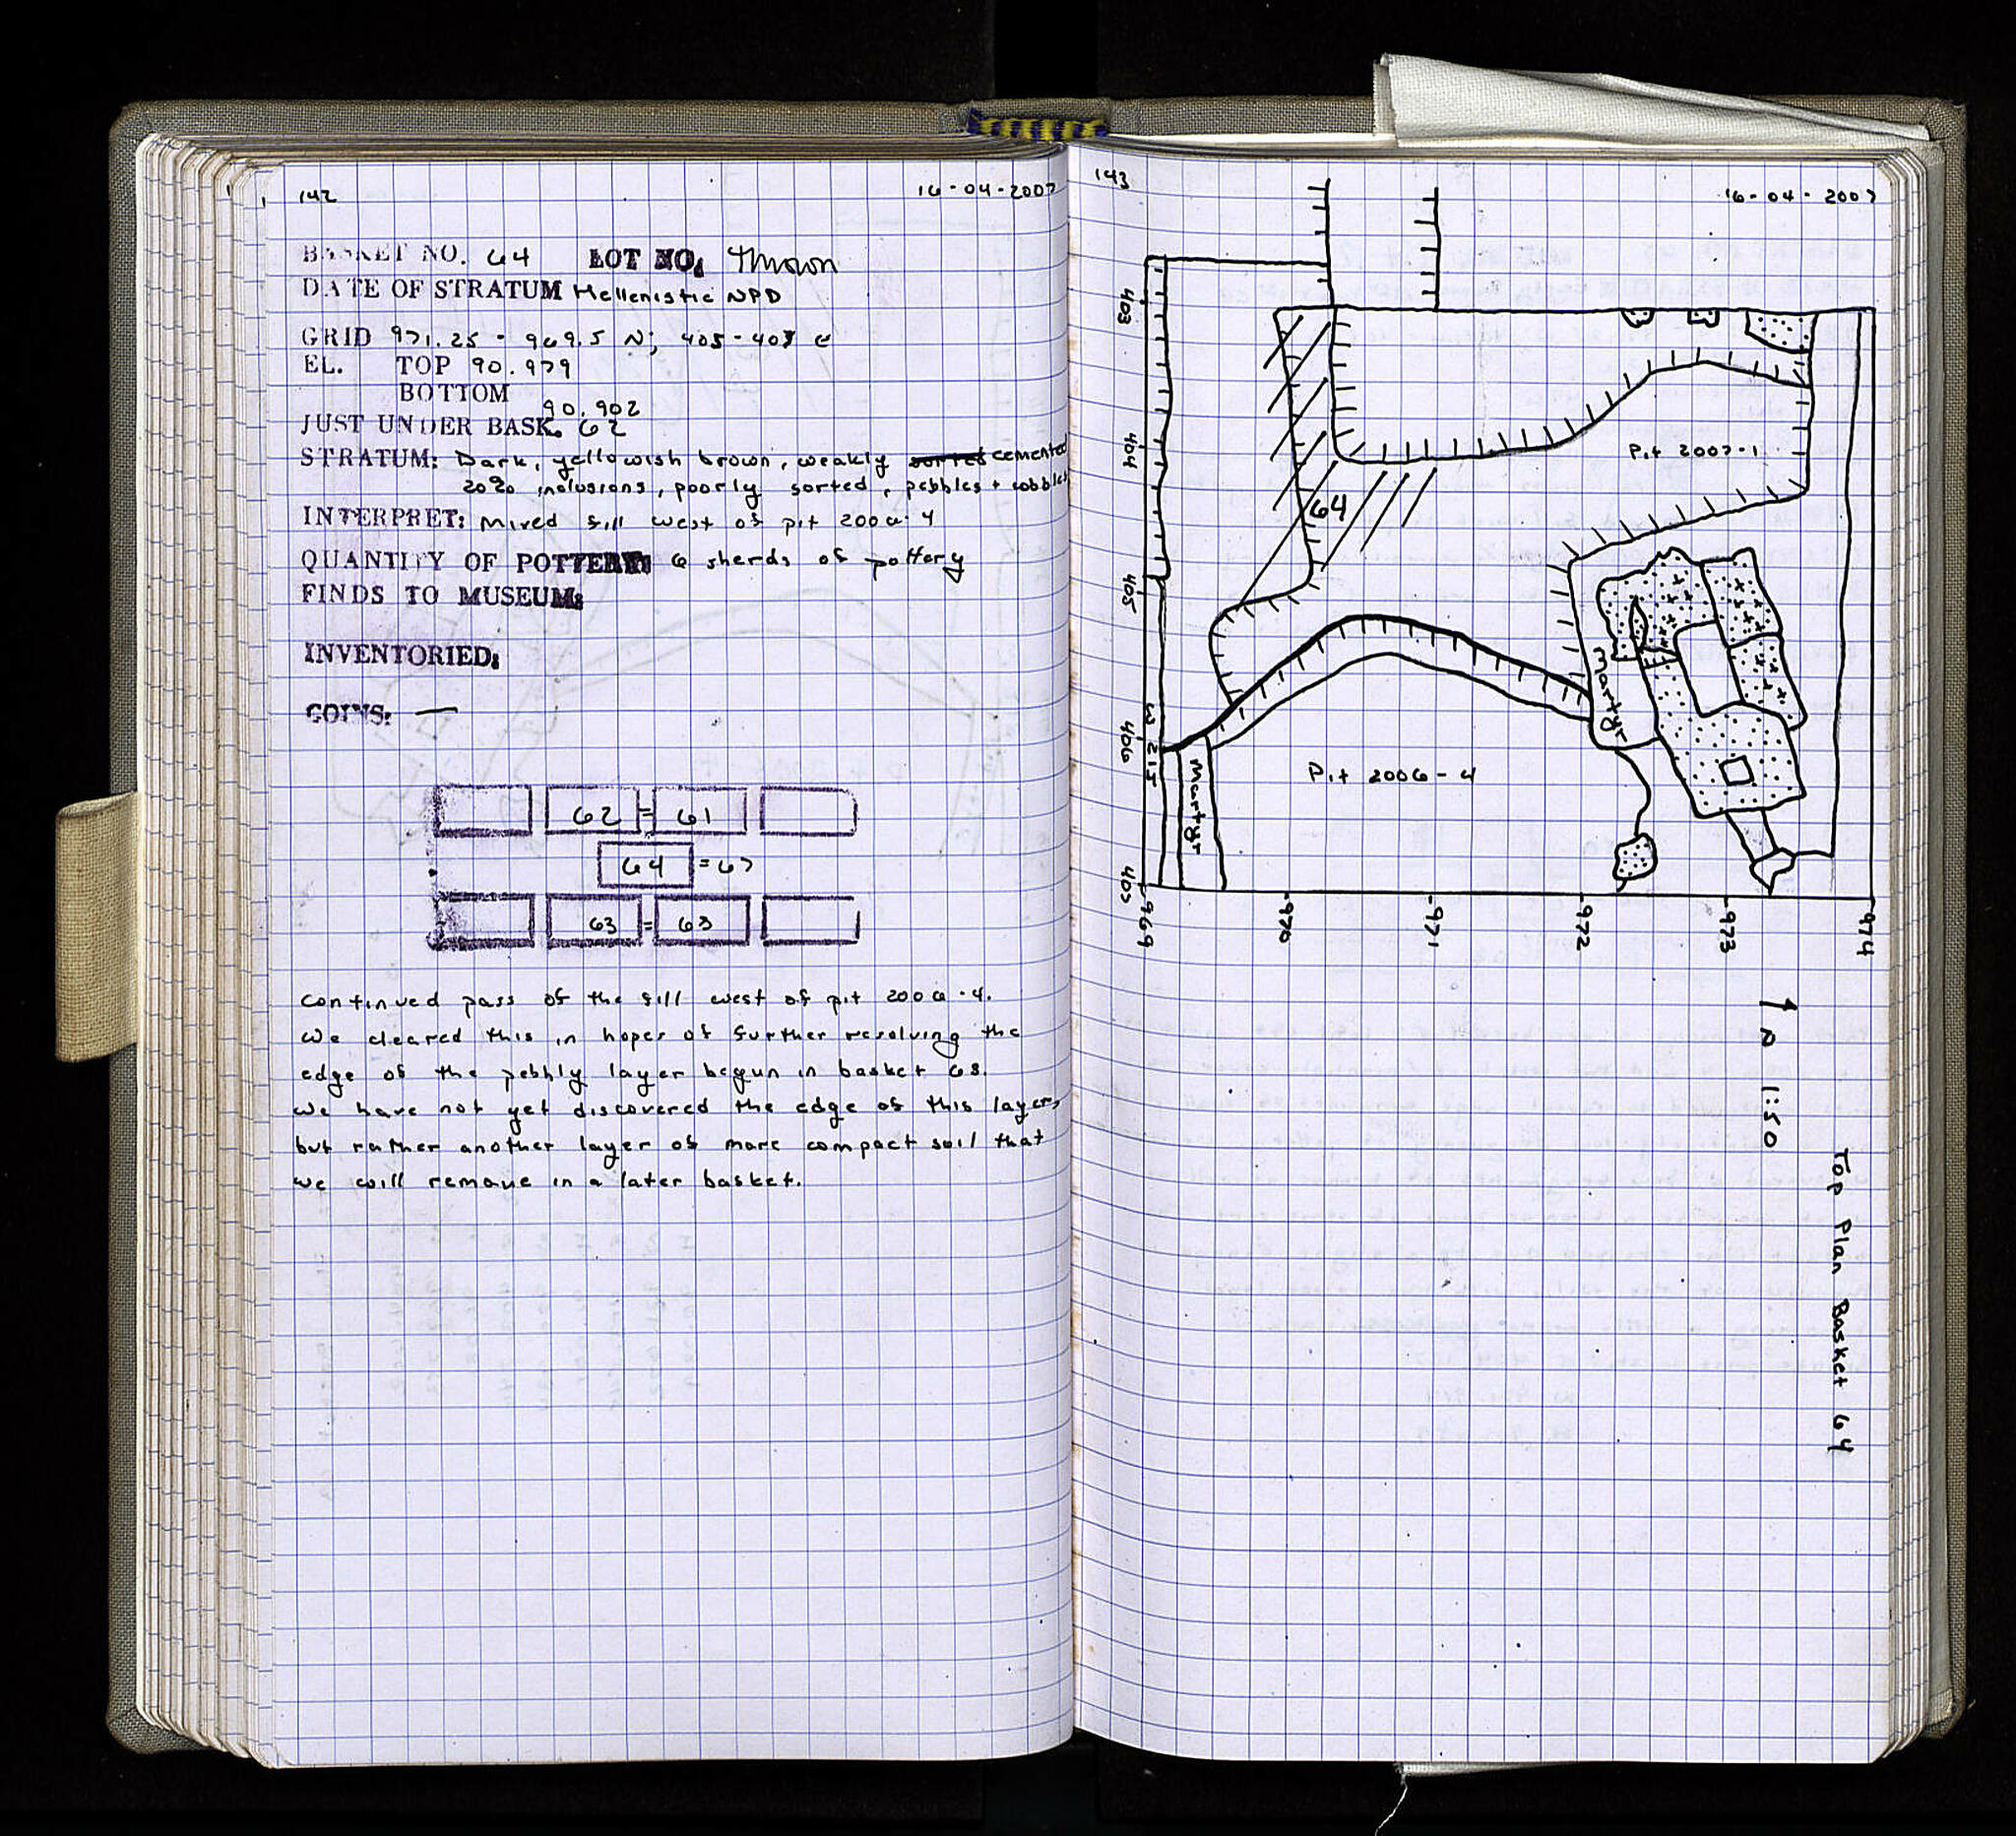 142
16-04-2007
BASKET NO. 64 LOT NO. Thrown
DATE OF STRATUM Hellenistic NPD
GRID 971.25 - 969.5 N; 405-403 E
EL. TOP 90.979
BOTTOM 90.902
JUST UNDER BASK. 62
STRATUM: Dark, yellowish brown, weakly cemented
20% inclusions, poorly sorted, pebbles + cobbles
INTERPRET: Mixed fill west of pit 2006-4
QUANTITY OF POTTERY: 6 sherds of pottery
FINDS TO MUSEUM:
INVENTORIED:
COINS: —
62 = 61
64 = 67
63 = 63
Continued pass of the fill west of pit 2006-4.
We cleared this in hopes of further resolving the
edge of the pebbly layer begun in basket 63.
We have not yet discovered the edge of this layer,
but rather another layer of more compact soil that
we will remove in a later basket.
143
16-04-2007
403
404
405
406
407
W 215
64
Pit 2007-1
martyr
martyr
Pit 2006-4
969
970
971
972
973
974
1:50
Top Plan Basket 64